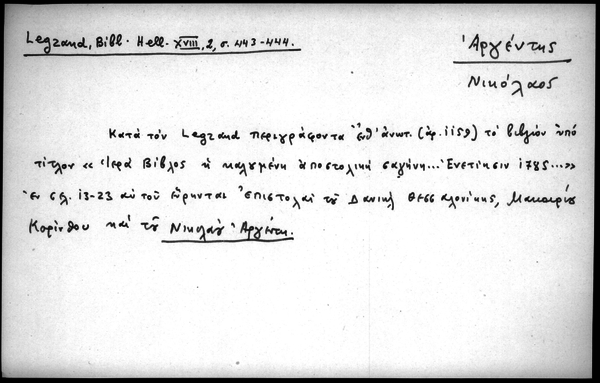 Legrand, Bibl. Hell. XVIII, 2, σ. 443-444.
Ἀργέντης
Νικόλαος
Κατὰ τὸν Legrand περιγράφοντα ἐνθ' ἀνωτ. (ἀρ. 1159) τὸ βιβλίον ὑπὸ
τίτλον «Ἱερὰ Βίβλος ἡ καλουμένη ἀποστολικὴ σαγήνη... Ἐνετίησιν 1785...»
ἐν σελ. 13-23 αὐτοῦ εὕρηνται ἐπιστολαὶ τοῦ Δανιὴλ Θεσσαλονίκης, Μακαρίου
Κορίνθου καὶ τοῦ Νικολάου Ἀργέντη.